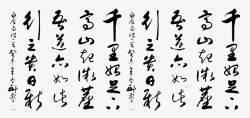 千里始足下
高山起微塵
吾道亦如此
行之貴日新
千里始足下
高山起微塵
吾道亦如此
行之貴日新